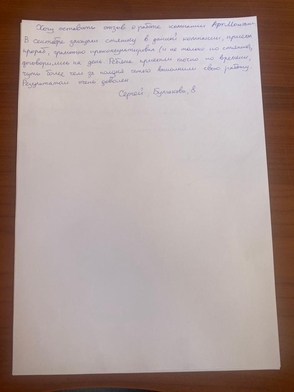 Хочу оставить отзыв о работе компании
В сентябре заказали стяжку в данной компании, приехал
прораб, грамотно проконсультировал (и не только по стяжке),
договорились на день. Ребята приехали точно по времени,
чуть более чем за часов выполнили свою работу
Результатом очень доволен.
Сергей